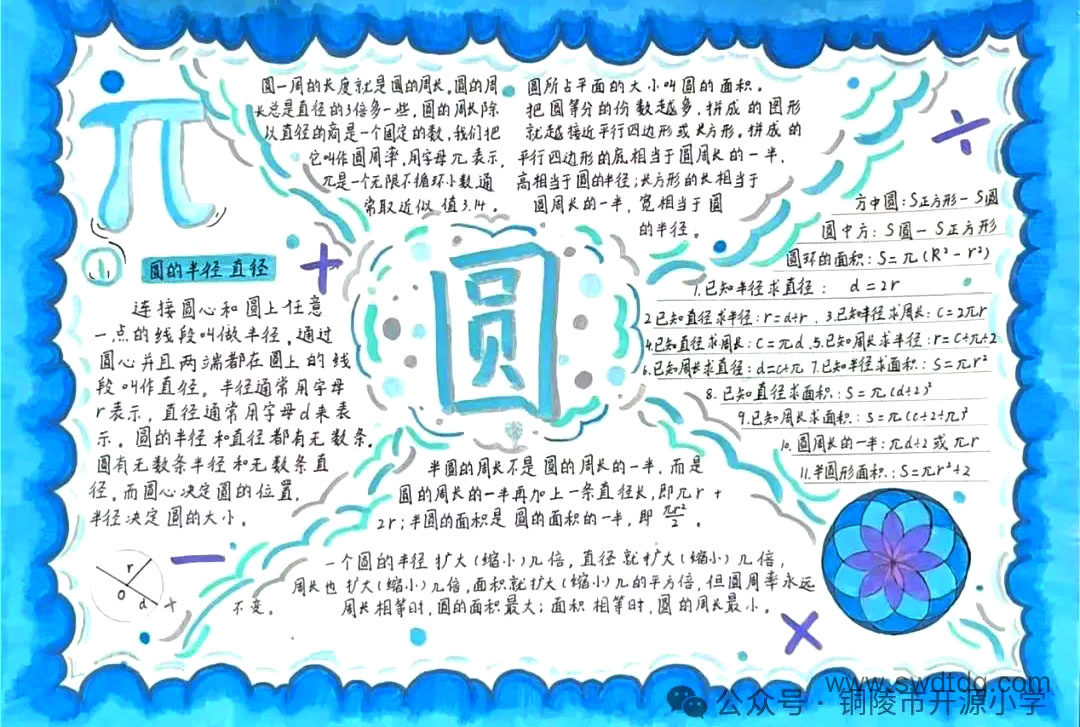 π
圆一周的长度就是圆的周长。圆的周
长总是直径的3倍多一些,圆的周长除
以直径的商是一个固定的数,我们把
它叫作圆周率,用字母π表示,
π是一个无限不循环小数,通
常取近似值3.14。
圆所占平面的大小叫圆的面积。
把圆等分的份数越多,拼成的图形
就越接近平行四边形或长方形。拼成的
平行四边形的底相当于圆周长的一半,
高相当于圆的半径;长方形的长相当于
圆周长的一半,宽相当于圆
的半径。
÷
方中圆:S正方形-S圆
圆中方:S圆-S正方形
圆环的面积:S=π(R²-r²)
1.已知半径求直径: d=2r
2.已知直径求半径:r=d÷r.3.已知半径求周长:C=2πr
4.已知直径求周长:C=πd.5.已知周长求半径:r=C÷π÷2
6.已知周长求直径:d=C÷π 7.已知半径求面积:S=πr²
8.已知直径求面积:S=π(d÷2)²
9.已知周长求面积:S=π(C÷2÷π)²
10.圆周长的一半:πd÷2或πr
11.半圆形面积:S=πr²÷2
① 圆的半径 直径
+
连接圆心和圆上任意
一点的线段叫做半径,通过
圆心并且两端都在圆上的线
段叫作直径。半径通常用字母
r表示,直径通常用字母d来表
示。圆的半径和直径都有无数条.
圆有无数条半径和无数条直
径,而圆心决定圆的位置,
半径决定圆的大小。
圆
半圆的周长不是圆的周长的一半,而是
圆的周长的一半再加上一条直径长,即πr+
2r;半圆的面积是圆的面积的一半,即πr²/2。
一个圆的半径扩大(缩小)几倍,直径就扩大(缩小)几倍,
周长也扩大(缩小)几倍,面积就扩大(缩小)几的平方倍,但圆周率永远
不变。 周长相等时,圆的面积最大;面积相等时,圆的周长最小。
－
r
o
d
+
×
www.swdtdq.com
公众号·铜陵市开源小学